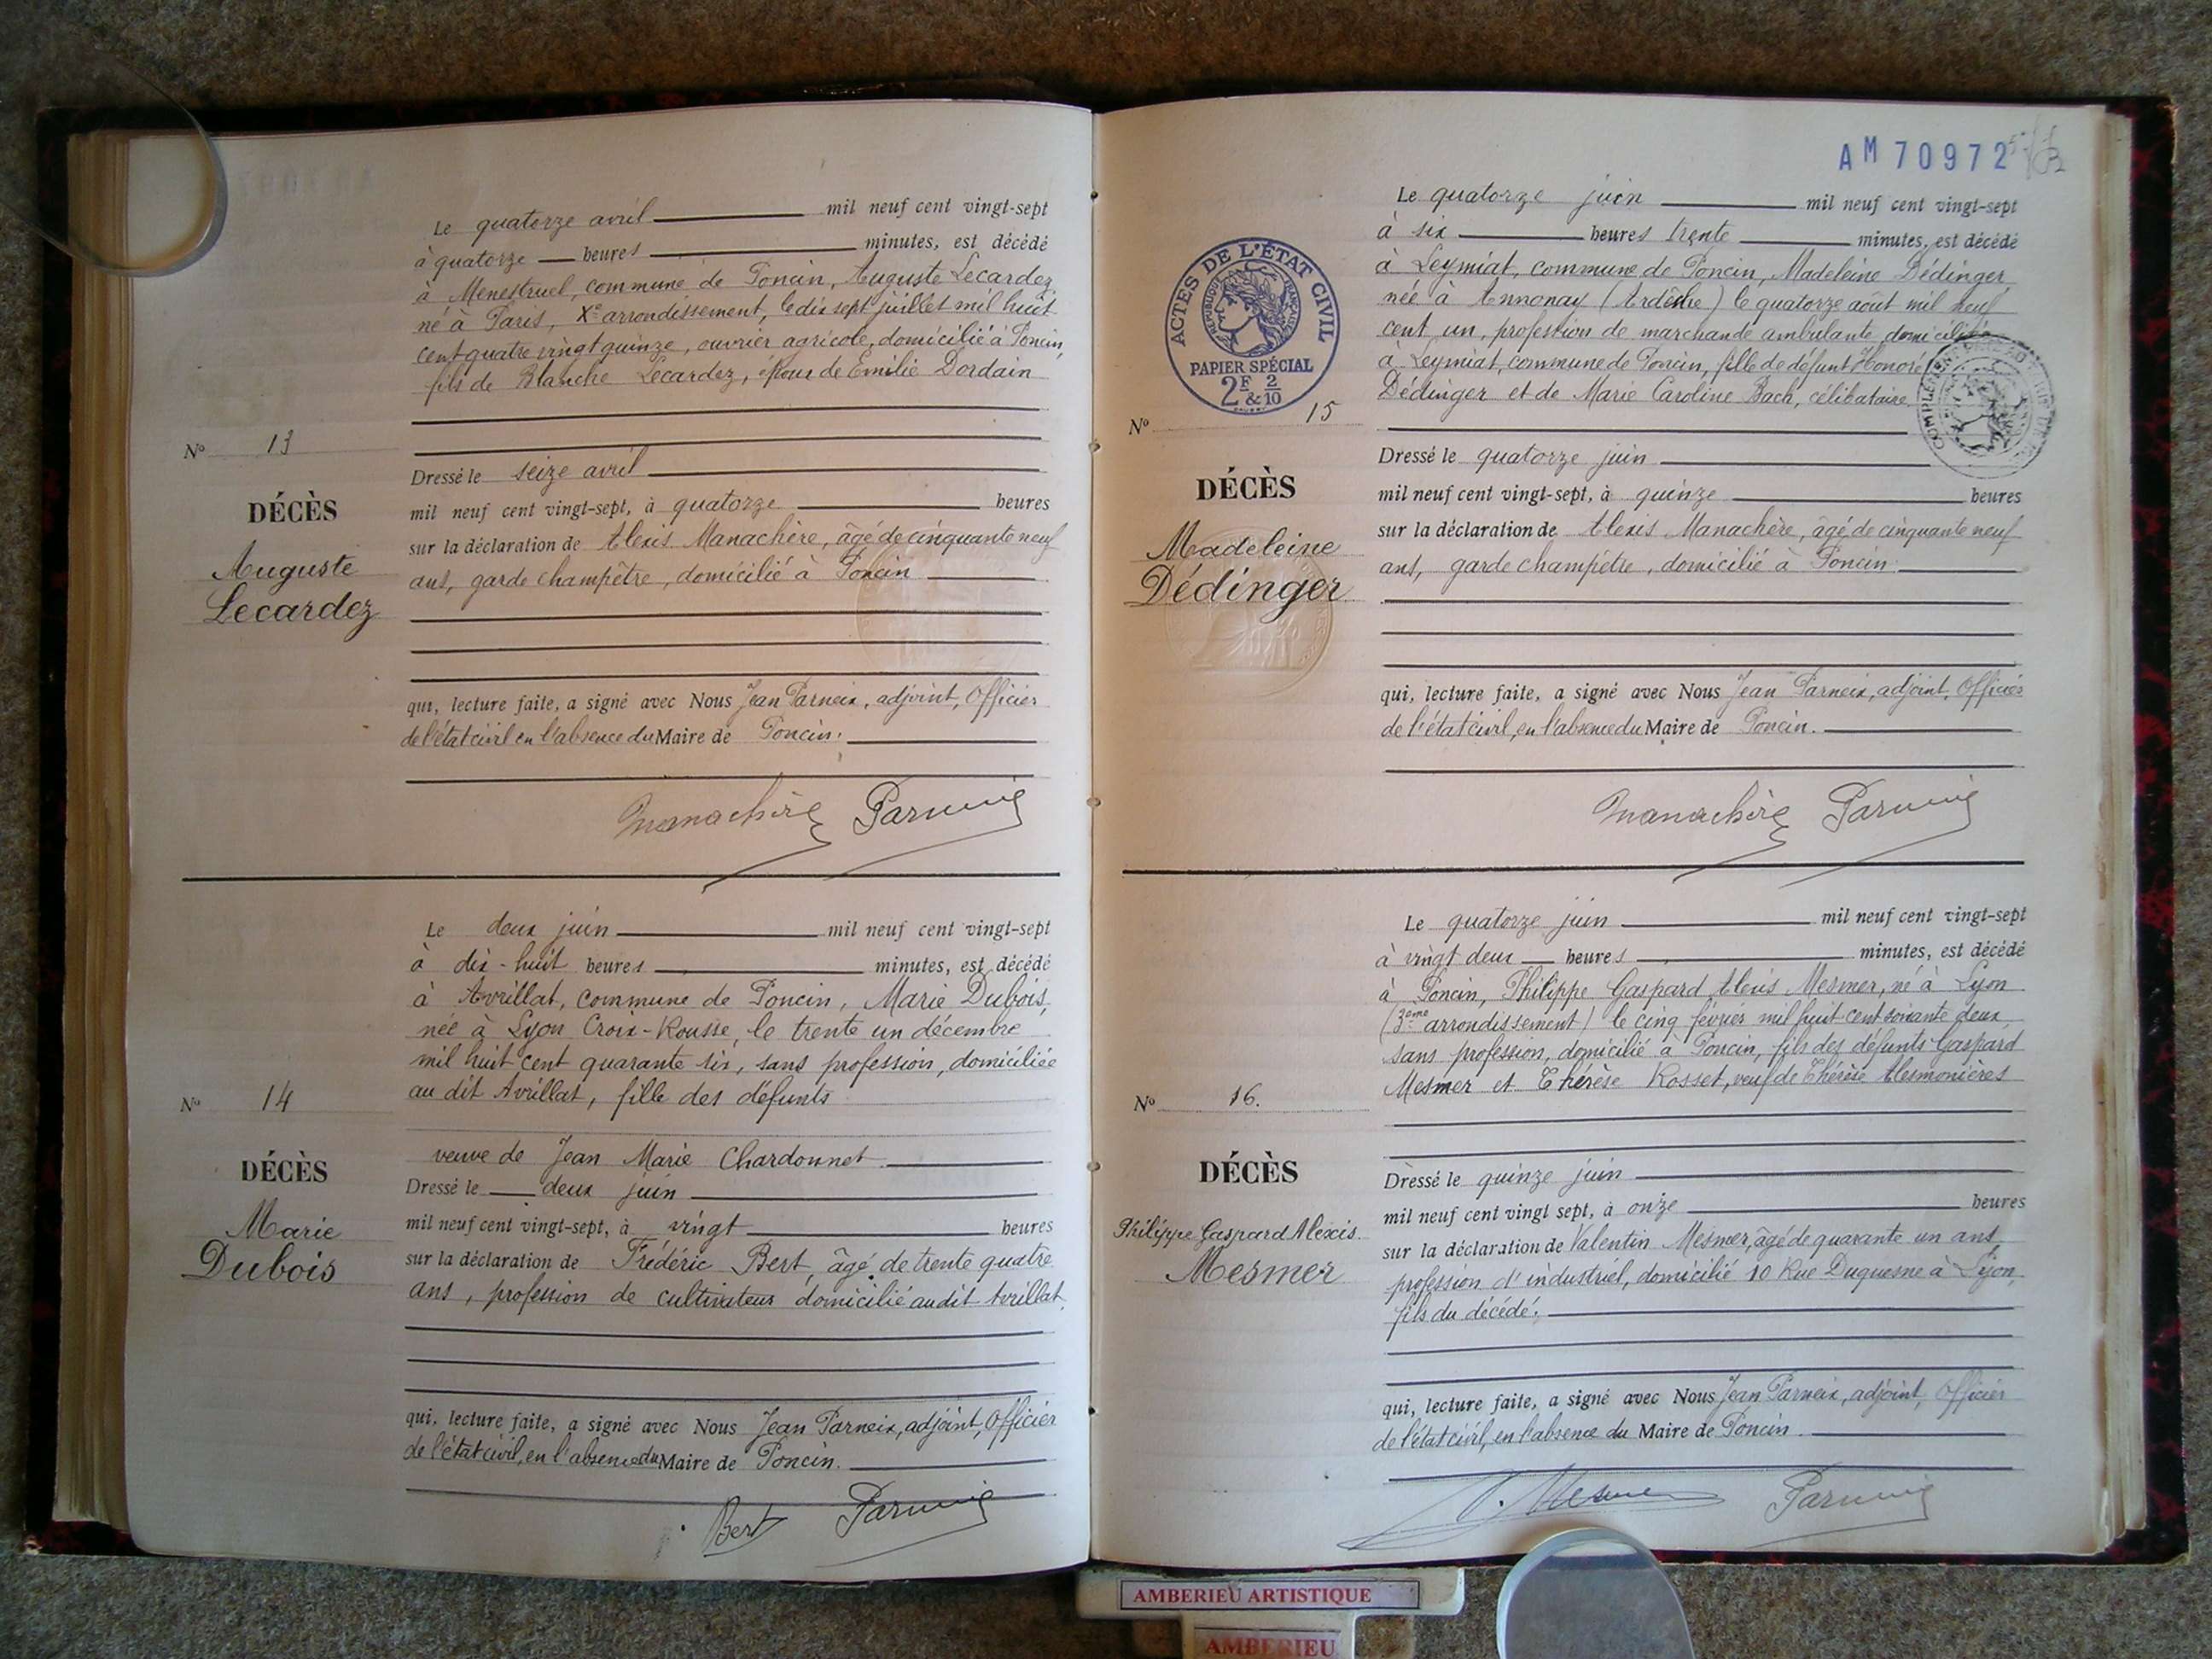 Le quatorze avril mil neuf cent vingt-sept
à quatorze heures minutes, est décédé
à Menestruel, commune de Poncin, Auguste Lecardez,
né à Paris, Xe arrondissement, le dix sept juillet mil huit
cent quatre vingt quinze, ouvrier agricole, domicilié à Poncin,
fils de Blanche Lecardez, époux de Emilie Dordain
No 13
DÉCÈS
Auguste
Lecardez
Dressé le seize avril
mil neuf cent vingt-sept, à quatorze heures
sur la déclaration de Alexis Manachère, âgé de cinquante neuf
ans, garde champêtre, domicilié à Poncin
qui, lecture faite, a signé avec Nous Jean Parneix, adjoint, Officier
de l'état civil en l'absence du Maire de Poncin.
Manachère Parneix
Le deux juin mil neuf cent vingt-sept
à dix-huit heures minutes, est décédé
à Avrillat, commune de Poncin, Marie Dubois,
née à Lyon Croix-Rousse, le trente un décembre
mil huit cent quarante six, sans profession, domiciliée
au dit Avrillat, fille des défunts
veuve de Jean Marie Chardonnet
No 14
DÉCÈS
Marie
Dubois
Dressé le deux juin
mil neuf cent vingt-sept, à vingt heures
sur la déclaration de Frédéric Bert, âgé de trente quatre
ans, profession de cultivateur domicilié au dit Avrillat,
qui, lecture faite, a signé avec Nous Jean Parneix, adjoint, Officier
de l'état civil, en l'absence du Maire de Poncin.
Bert Parneix
AM 70972
ACTES DE L'ÉTAT CIVIL
RÉPUBLIQUE FRANÇAISE
PAPIER SPÉCIAL
2F & 2/10
Le quatorze juin mil neuf cent vingt-sept
à six heures trente minutes, est décédé
à Leymiat, commune de Poncin, Madeleine Dédinger,
née à Annonay (Ardèche) le quatorze août mil neuf
cent un, profession de marchande ambulante, domiciliée
à Leymiat, commune de Poncin, fille de défunt Honoré
Dédinger et de Marie Caroline Bach, célibataire.
No 15
DÉCÈS
Madeleine
Dédinger
Dressé le quatorze juin
mil neuf cent vingt-sept, à quinze heures
sur la déclaration de Alexis Manachère, âgé de cinquante neuf
ans, garde champêtre, domicilié à Poncin
qui, lecture faite, a signé avec Nous Jean Parneix, adjoint, Officier
de l'état civil, en l'absence du Maire de Poncin.
Manachère Parneix
Le quatorze juin mil neuf cent vingt-sept
à vingt deux heures minutes, est décédé
à Poncin, Philippe Gaspard Alexis Mesmer, né à Lyon
(3ème arrondissement) le cinq février mil huit cent soixante deux,
sans profession, domicilié à Poncin, fils des défunts Gaspard
Mesmer et Thérèse Rosset, veuf de Thérèse Alesmonières
No 16.
DÉCÈS
Philippe Gaspard Alexis
Mesmer
Dressé le quinze juin
mil neuf cent vingt sept, à onze heures
sur la déclaration de Valentin Mesmer, âgé de quarante un ans
profession d'industriel, domicilié 10 Rue Duquesne à Lyon,
fils du décédé.
qui, lecture faite, a signé avec Nous Jean Parneix, adjoint, Officier
de l'état civil, en l'absence du Maire de Poncin.
V. Mesmer Parneix
AMBERIEU ARTISTIQUE
AMBERIEU